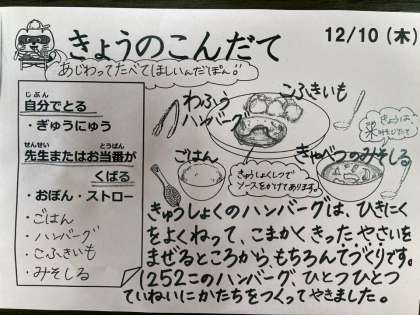 きょうのこんだて
12/10 (木)
あじわってたべてほしいんだぽん!!
じぶん
自分でとる
・ぎゅうにゅう
せんせい とうばん
先生またはお当番が
くばる
・おぼん・ストロー
・ごはん
・ハンバーグ
・こふきいも
・みそしる
わふう
ハンバーグ
こふきいも
ごはん
きゅうしょくしつで
ソースをかけてあります。
きょうは、
きゃべつのみそしる
きゅうしょくのハンバーグは、ひきにく
をよくねって、こまかくきったやさいを
まぜるところから、もちろんてづくりです。
1252このハンバーグ、ひとつひとつ
ていねいにかたちをつくってやきました。